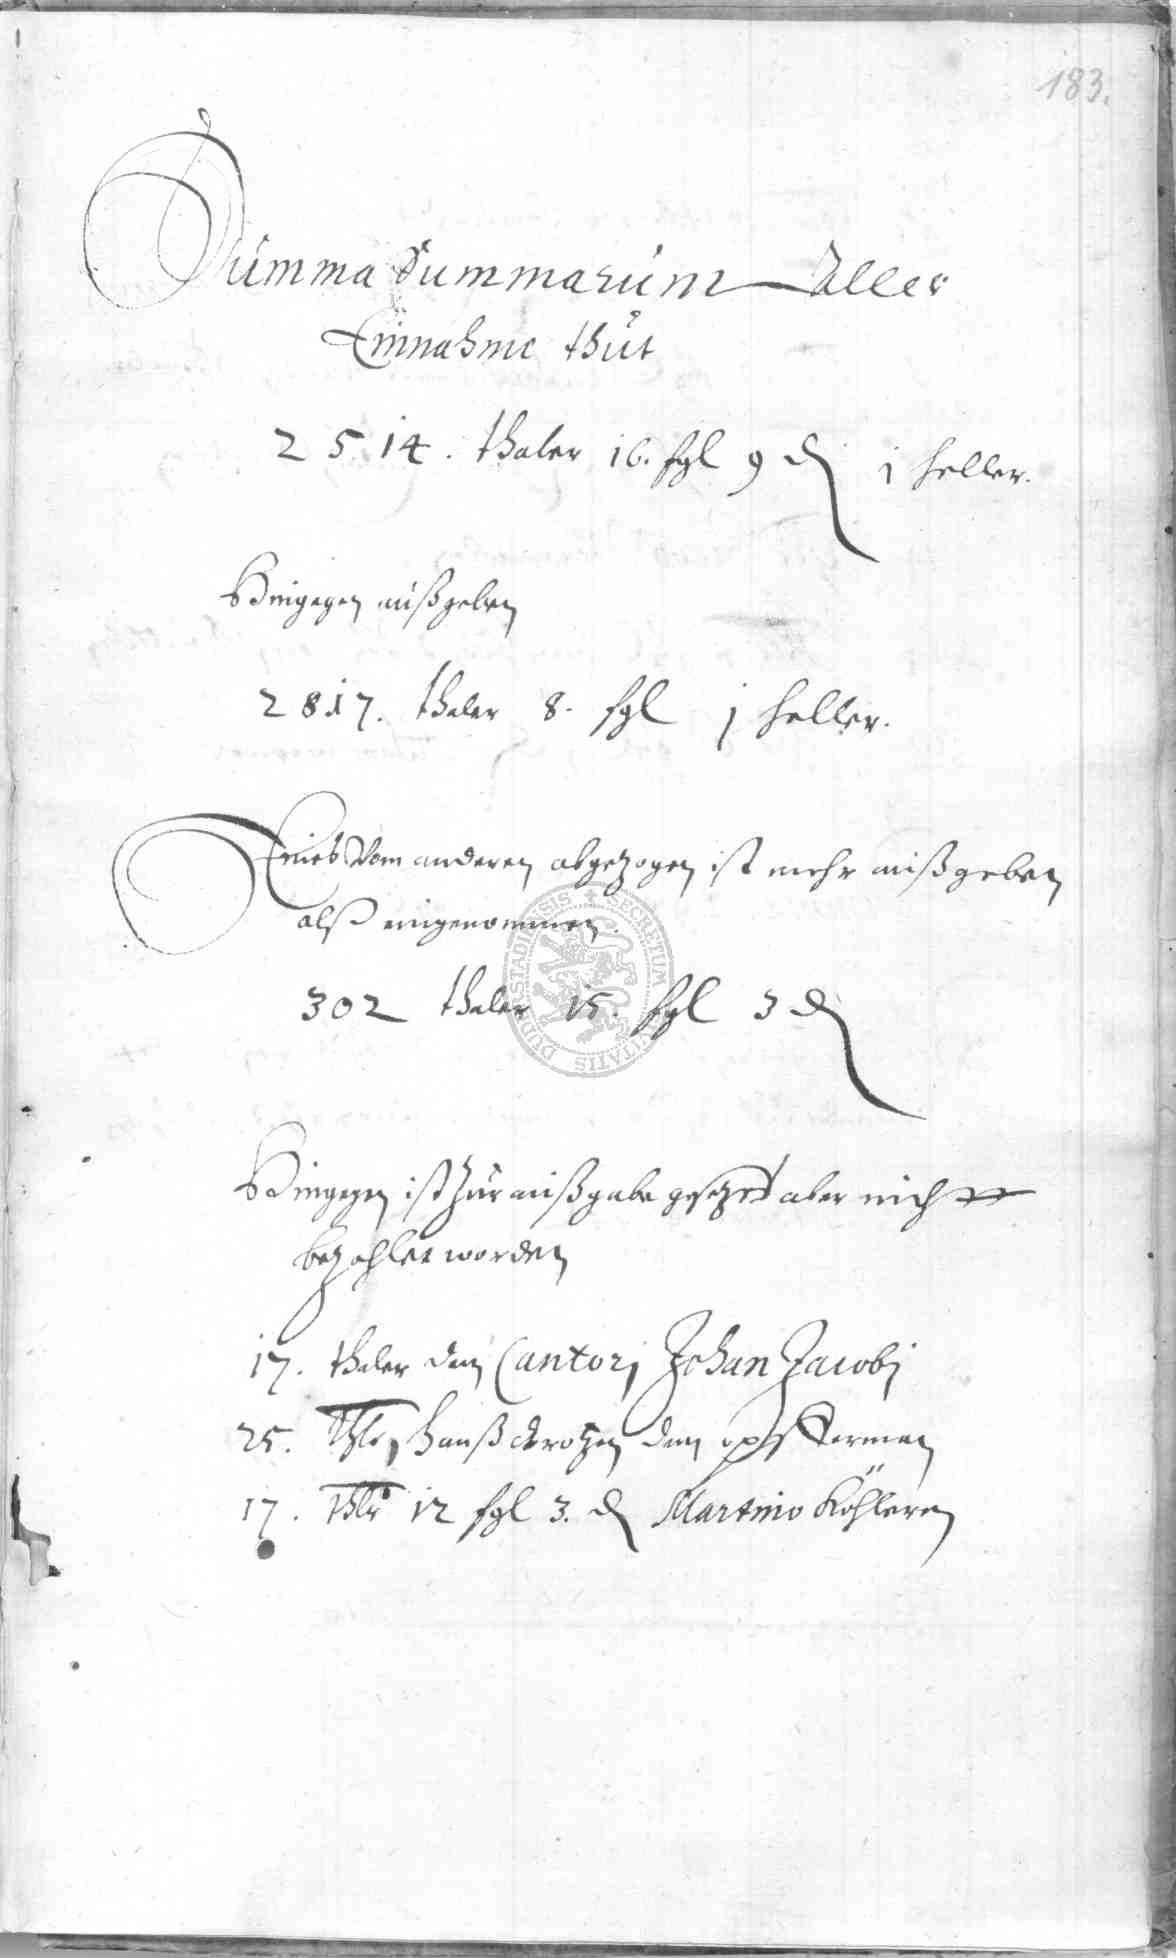 183.
Summa Summarum Aller
Einnahme thut
2514. thaler 16. sgl 9 d 1 heller.
Hingegen außgeben
2817. thaler 8. sgl j heller.
Eines Vom anderen abgezogen ist mehr außgeben
alß eingenommen
302 thaler 15. sgl 3 d
Hingegen ist zur außgabe gesetzet aber nicht
bezahlet worden
17. thaler dem Cantorj Johan Jacobj
25. thlr hanß dem opfferman
17. thlr 12 sgl 3. d Martino Köhleren
SECRETUM CIVITATIS DUDERSTADIENSIS